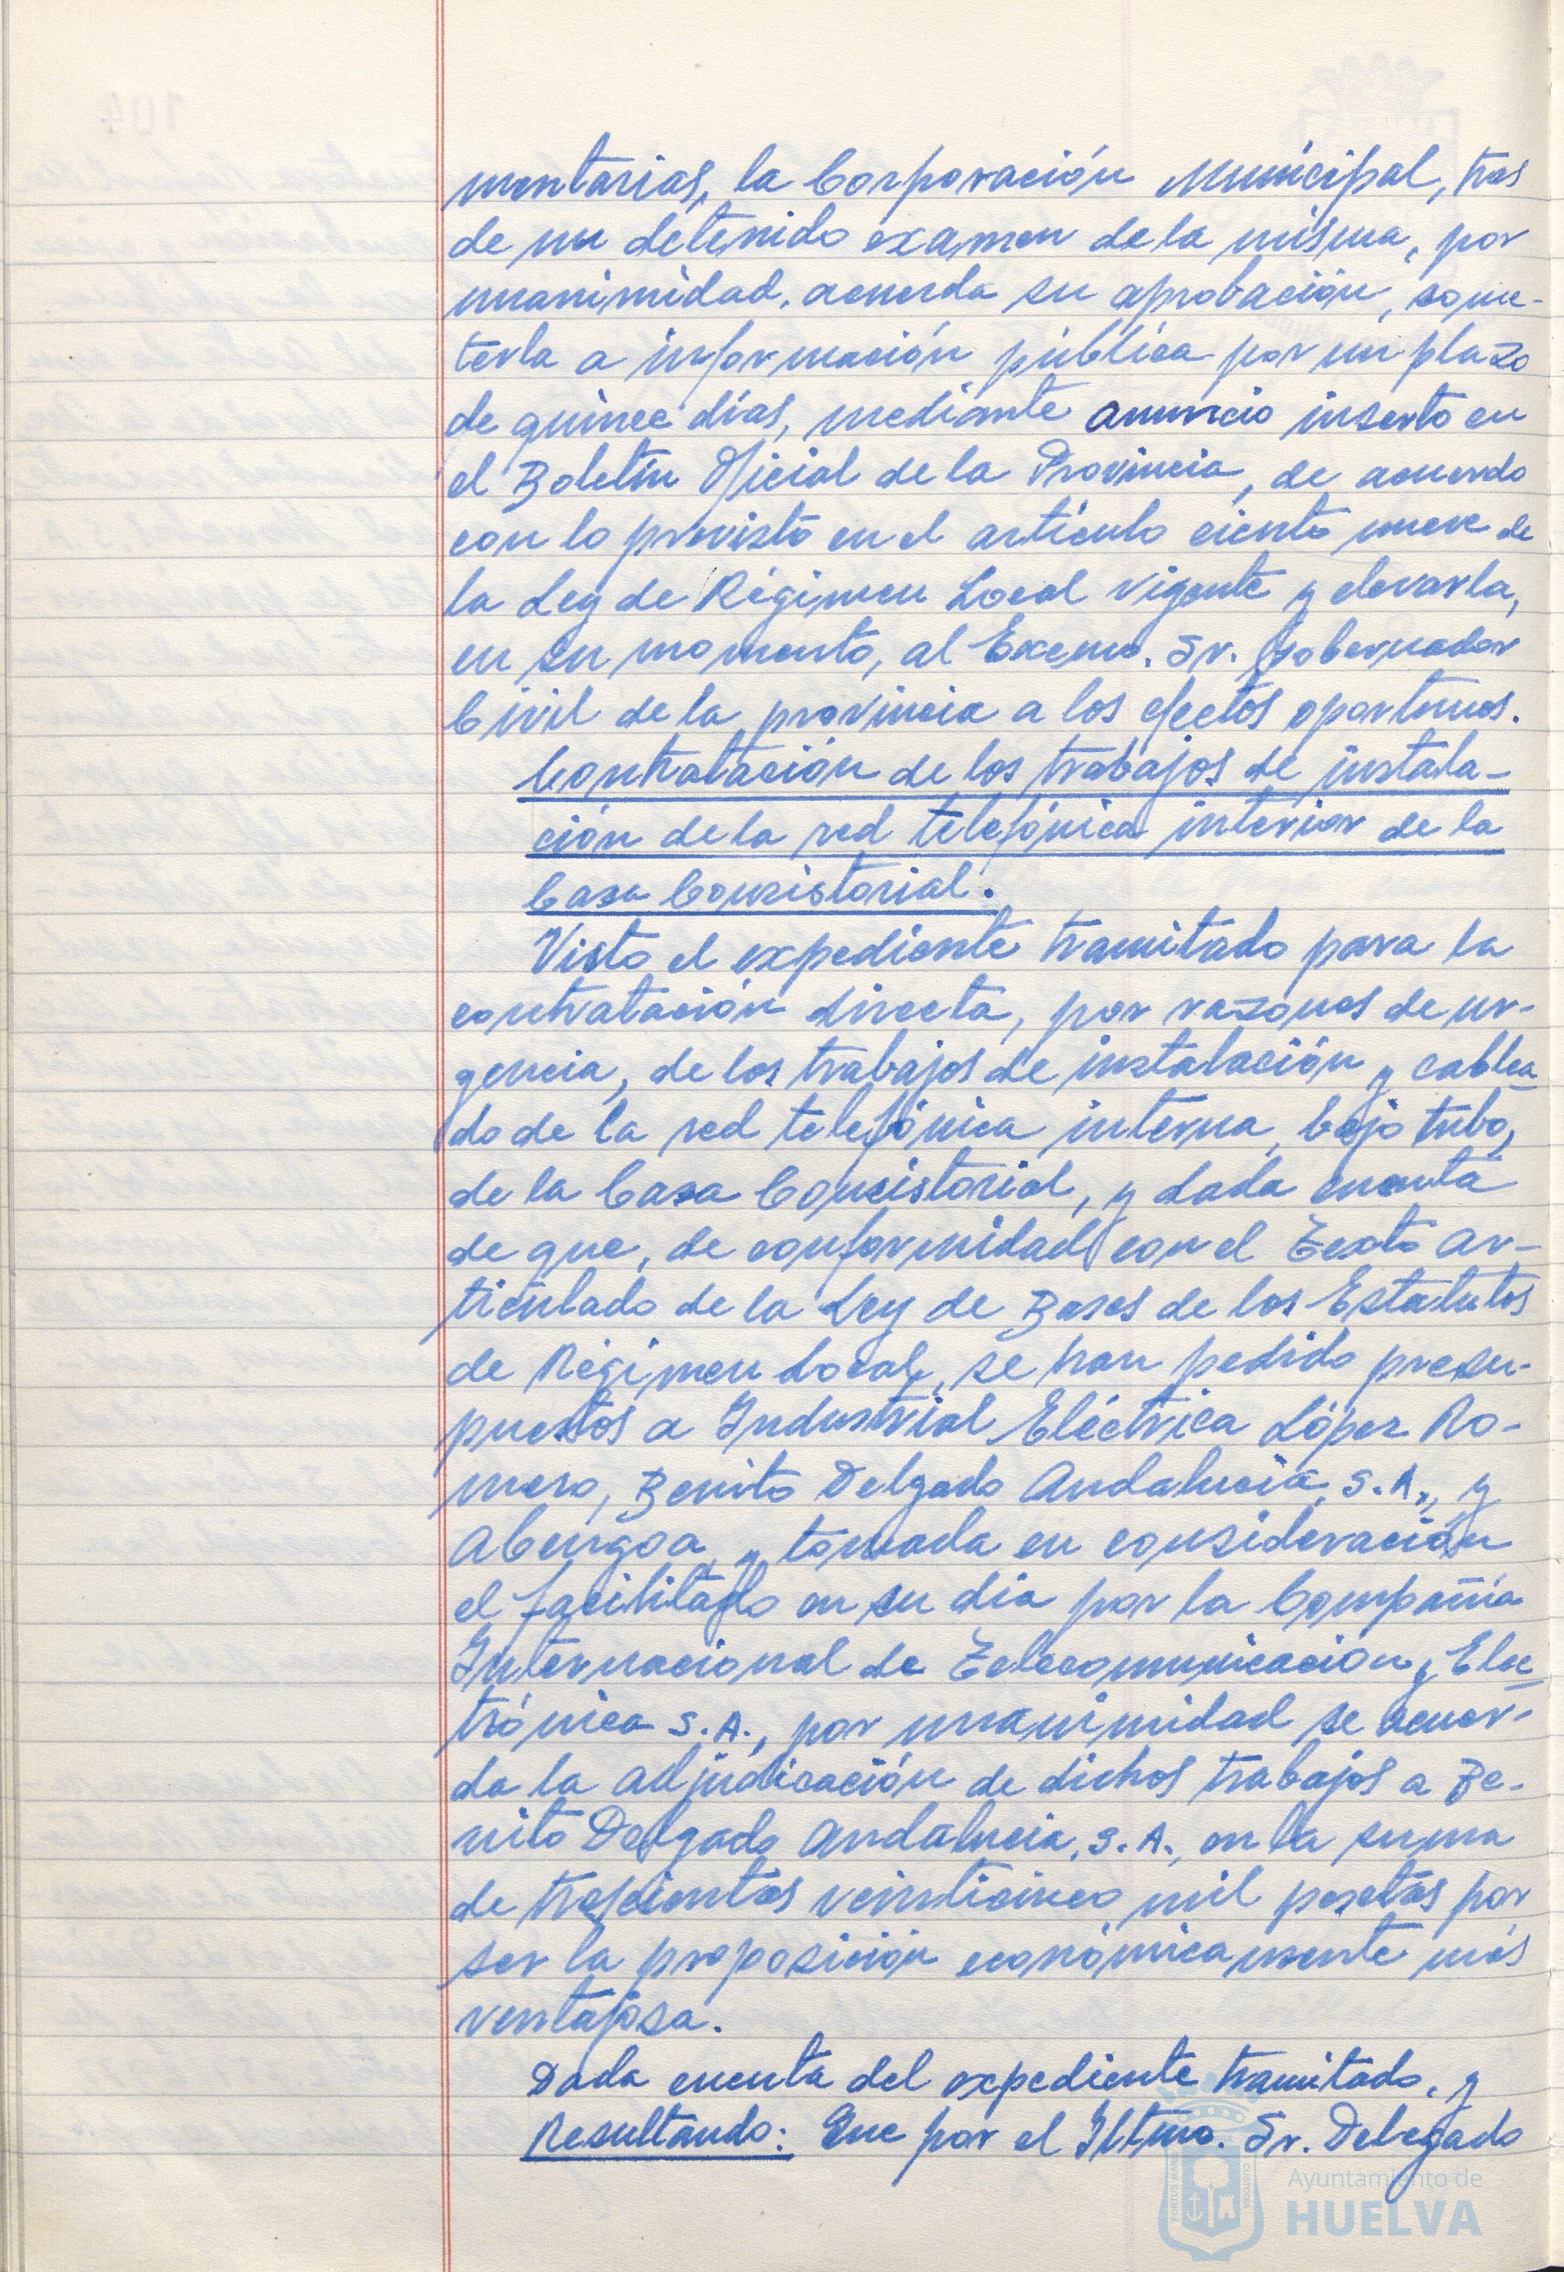 mentarias, la Corporación Municipal, tras
de un detenido examen de la misma, por
unanimidad, acuerda su aprobación, some-
terla a información pública por un plazo
de quince días, mediante anuncio inserto en
el Boletín Oficial de la Provincia, de acuerdo
con lo previsto en el artículo ciento nueve de
la Ley de Régimen Local vigente y elevarla,
en su momento, al Excmo. Sr. Gobernador
Civil de la provincia a los efectos oportunos.
Contratación de los trabajos de instala-
ción de la red telefónica interior de la
Casa Consistorial.
Visto el expediente tramitado para la
contratación directa, por razones de ur-
gencia, de los trabajos de instalación y cablea
do de la red telefónica interna, bajo tubo,
de la Casa Consistorial, y dada cuenta
de que, de conformidad con el Texto ar-
ticulado de la Ley de Bases de los Estatutos
de Régimen Local, se han pedido presu-
puestos a Industrial Eléctrica López Ro-
mero, Benito Delgado Andalucía, S.A., y
Abengoa, y tomada en consideración
el facilitado en su día por la Compañía
Internacional de Telecomunicación y Elec
trónica S.A., por unanimidad se acuer-
da la adjudicación de dichos trabajos a Be-
nito Delgado Andalucía, S.A., en la suma
de trescientas veinticinco mil pesetas por
ser la proposición económicamente más
ventajosa.
Dada cuenta del expediente tramitado, y
Resultando: Que por el Iltmo. Sr. Delegado
Ayuntamiento de
HUELVA